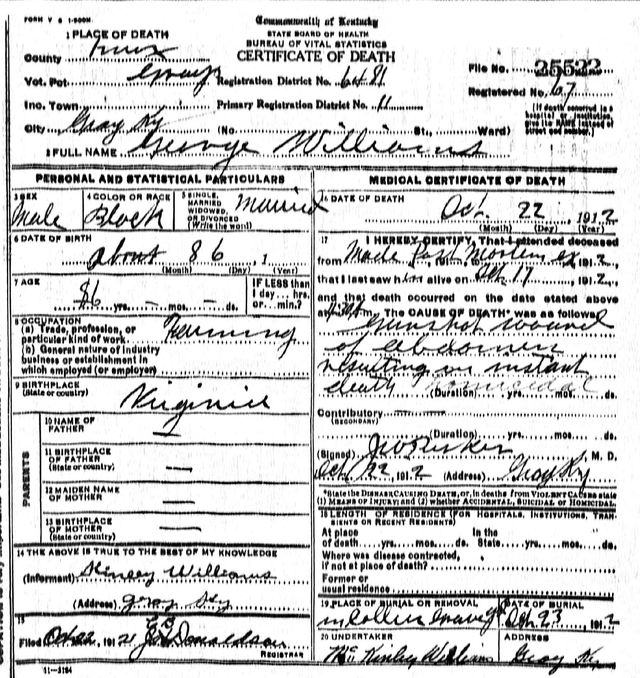 FORM V S 1-500M.
Commonwealth of Kentucky
STATE BOARD OF HEALTH
BUREAU OF VITAL STATISTICS
CERTIFICATE OF DEATH
1 PLACE OF DEATH
County Knox
Vot. Pct Grays Registration District No. 6481 File No. 25522
Inc. Town Primary Registration District No. 11 Registered No. 67
City Gray Ky (No. St., Ward) (If death occurred in a hospital or institution, give its NAME instead of street and number.)
2 FULL NAME George Williams
PERSONAL AND STATISTICAL PARTICULARS
3 SEX Male
4 COLOR OR RACE Black
5 SINGLE, MARRIED WIDOWED, OR DIVORCED (Write the word) Married
6 DATE OF BIRTH about 86, 1
(Month) (Day) (Year)
7 AGE 86 yrs. — mos. — ds. IF LESS than 1 day... hrs. or... min.?
8 OCCUPATION
(a) Trade, profession, or particular kind of work Farming
(b) General nature of industry business or establishment in which employed (or employer)
9 BIRTHPLACE (State or country) Virginia
PARENTS
10 NAME OF FATHER —
11 BIRTHPLACE OF FATHER (State or country) —
12 MAIDEN NAME OF MOTHER —
13 BIRTHPLACE OF MOTHER (State or country) —
14 THE ABOVE IS TRUE TO THE BEST OF MY KNOWLEDGE
(Informant) Williams
(Address) Gray Ky
15
Filed Oct 22, 191 Donaldson
REGISTRAR
11—3184
MEDICAL CERTIFICATE OF DEATH
16 DATE OF DEATH
Oct. 22, 1912
(Month) (Day) (Year)
17 I HEREBY CERTIFY, That I attended deceased
from Made Post Mortem ex, 1912,
that I last saw him alive on Oct 17, 1912,
and that death occurred on the date stated above
at m. The CAUSE OF DEATH* was as follows
Gunshot wound
of abdomen
resulting in instant
death Homicidal
(Duration) yrs. mos. ds.
Contributory —
(SECONDARY)
(Duration) yrs. mos. ds.
(Signed) M. D.
Oct 22, 1912 (Address) Gray Ky
*State the DISEASE CAUSING DEATH, or, in deaths from VIOLENT CAUSES state (1) MEANS OF INJURY; and (2) whether ACCIDENTAL, SUICIDAL OR HOMICIDAL.
18 LENGTH OF RESIDENCE (FOR HOSPITALS, INSTITUTIONS, TRANSIENTS OR RECENT RESIDENTS)
At place of death yrs. mos. ds. In the State yrs. mos. ds.
Where was disease contracted, if not at place of death?
Former or usual residence
19 PLACE OF BURIAL OR REMOVAL
DATE OF BURIAL Oct. 23, 1912
20 UNDERTAKER McKinley Williams
ADDRESS Gray Ky